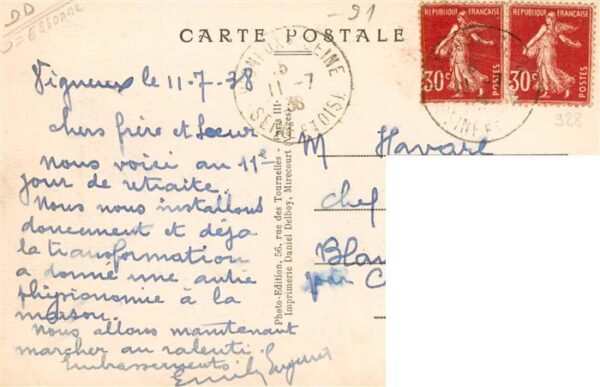 DD
= ESSONNE
- 91
CARTE POSTALE
Vigneux le 11-7-38
chers frère et Soeur
Nous voici au 11e
jour de retraite.
Nous nous installons
doucement et déjà
la transformation
a donné une autre
physionomie à la
maison.
Nous allons maintenant
marcher au ralenti.
Embrassements.
SEINE
11 -7
38
SEINE ET OISE
Photo-Edition, 56, rue des Tournelles - Paris III
Imprimerie Daniel Delboy, Mirecourt (Vosges)
REPUBLIQUE FRANÇAISE
30c
POSTES
REPUBLIQUE FRANÇAISE
30c
POSTES
928
M Havard
chef
Blan
par C